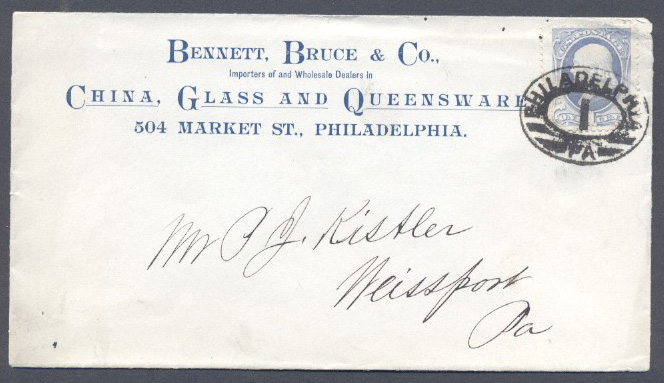 BENNETT, BRUCE & CO.,
Importers of and Wholesale Dealers in
CHINA, GLASS AND QUEENSWARE
504 MARKET ST., PHILADELPHIA.
PHILADELPHIA
1
PA
Mr P. J. Kistler
Weissport
Pa